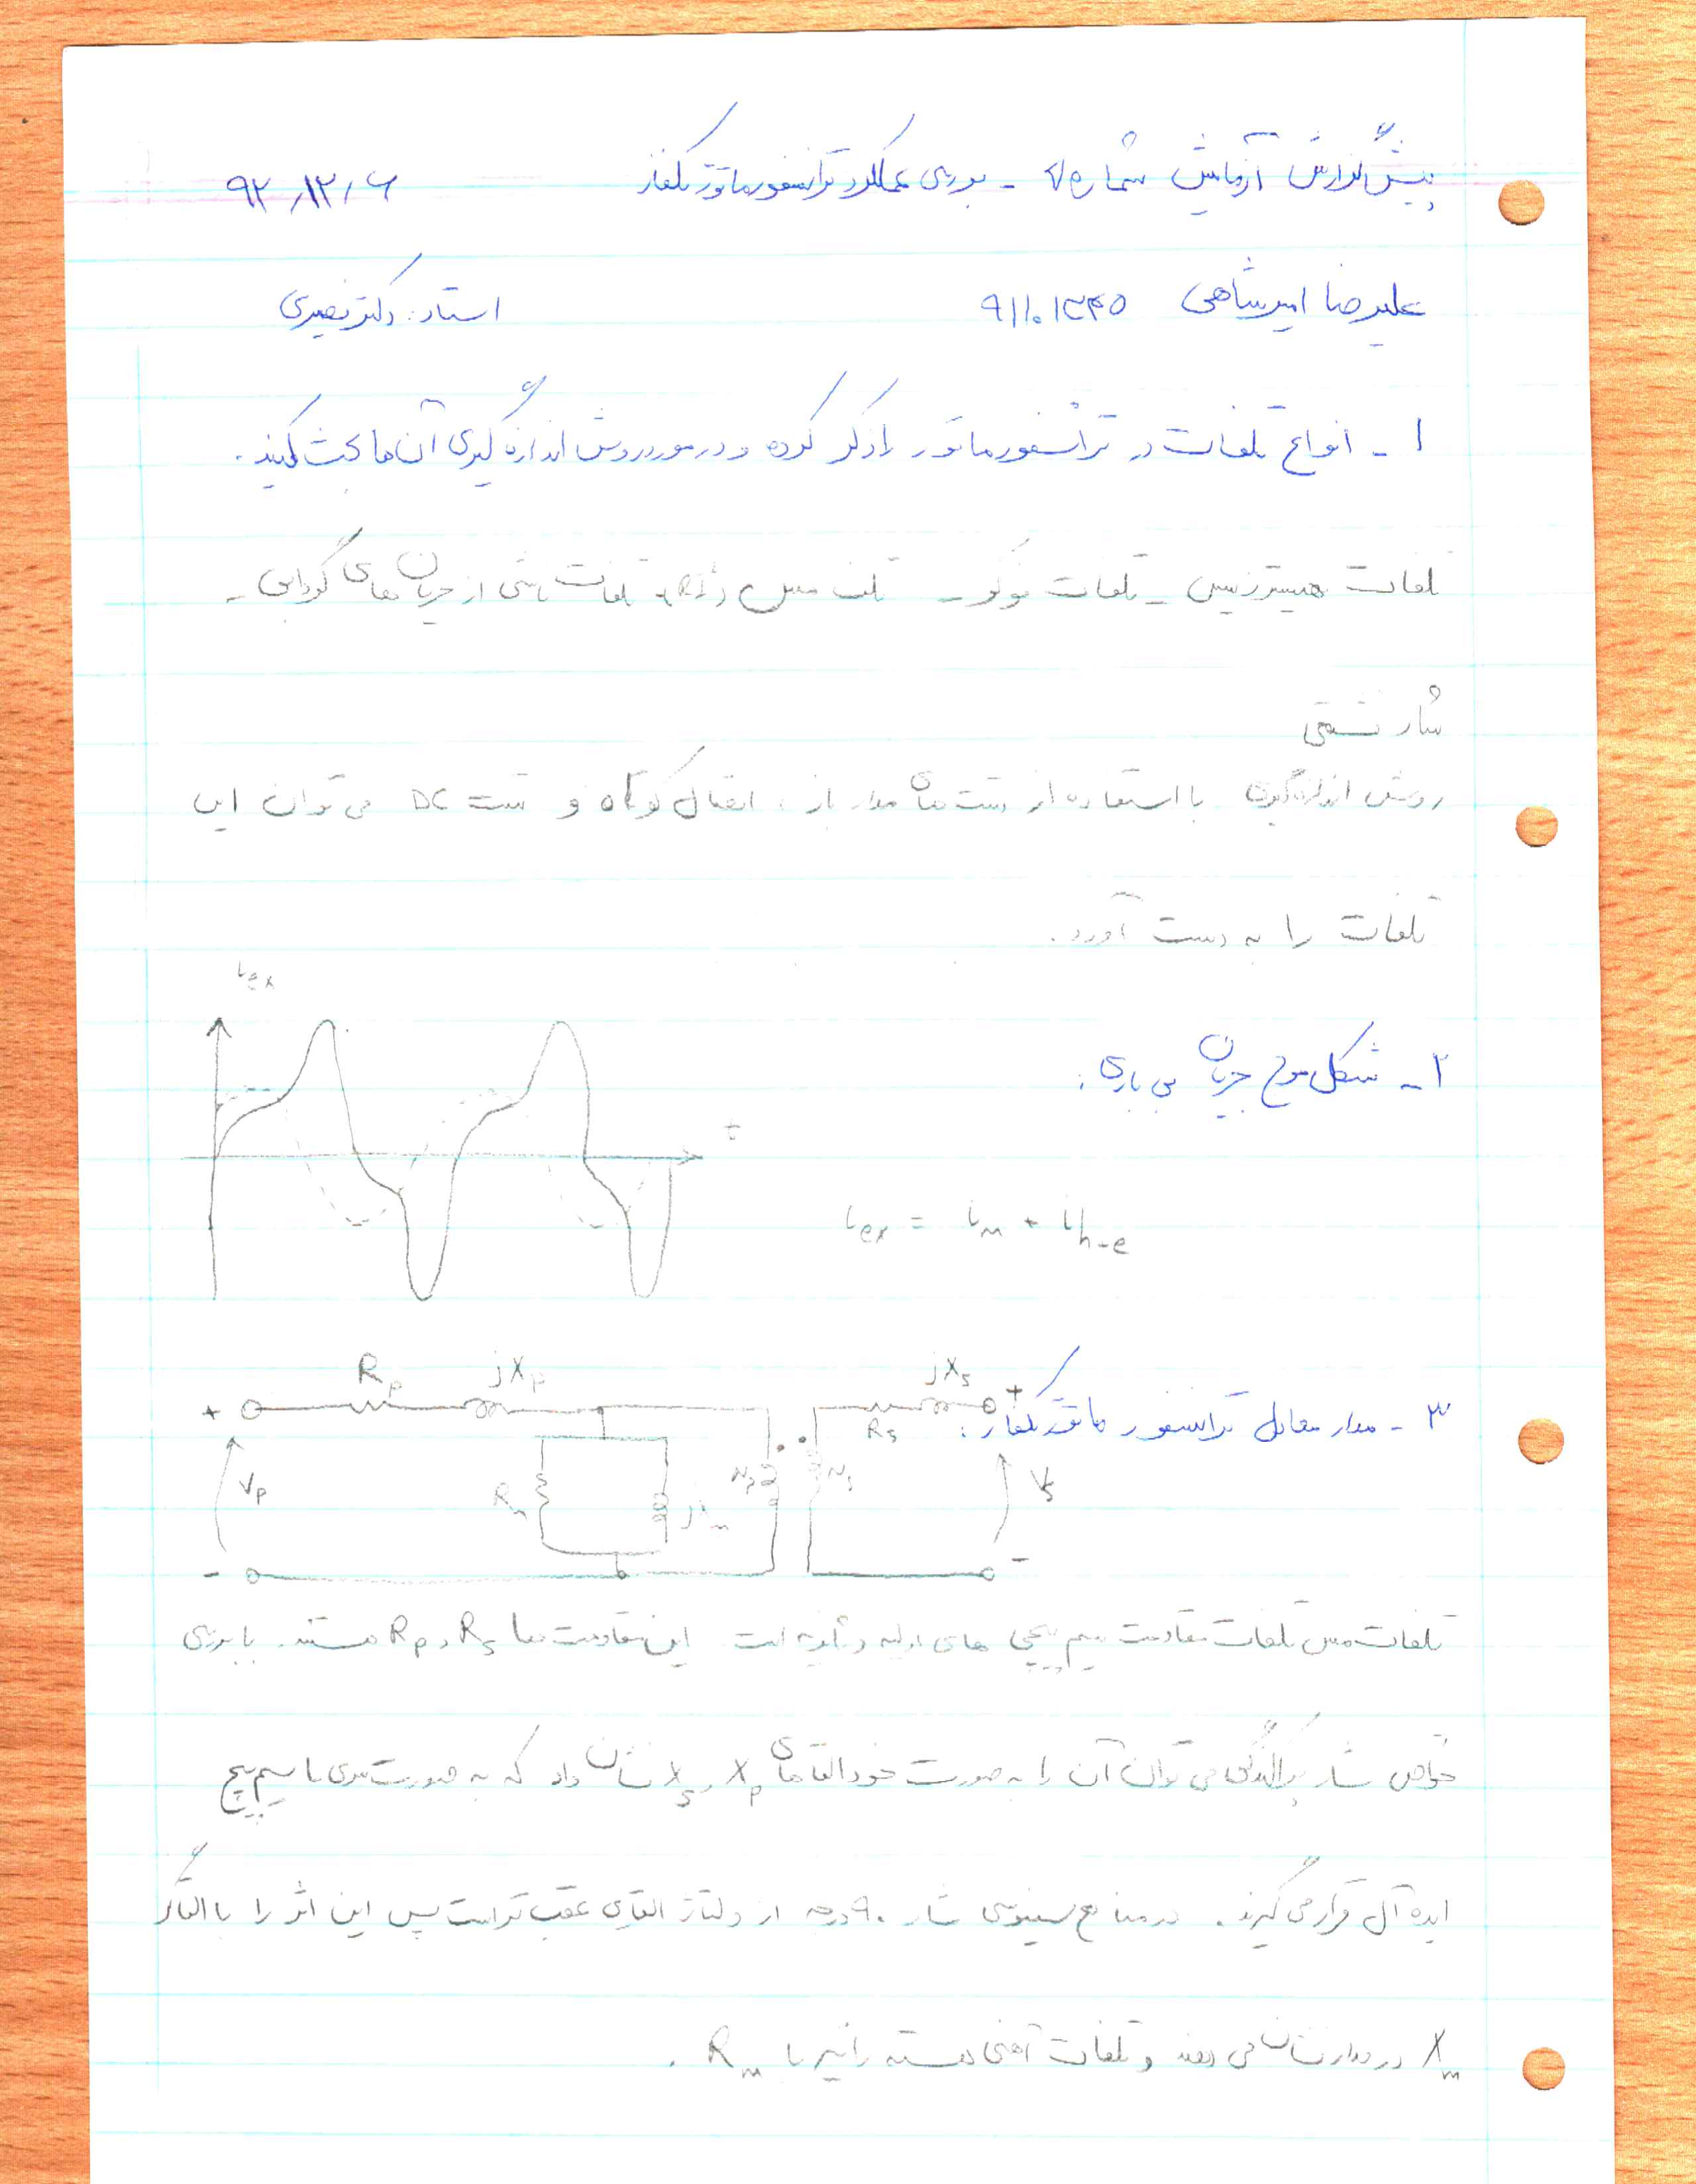 پیش گزارش آزمایش شماره ۷ - بررسی عملکرد ترانسفورماتور تکفاز ۹۲/۱۲/۶
علیرضا امیرشاهی ۹۱۱۰۱۲۴۵ استاد: دکتر نصیری
۱ - انواع تلفات در ترانسفورماتور را ذکر کرده و در مورد روش اندازه گیری آن ها بحث کنید.
تلفات هیسترزیس - تلفات فوکو - تلف مسی (RI²) تلفات ناشی از جریان های گردابی -
شار نشتی
روش اندازه گیری با استفاده از تست های مدار باز، اتصال کوتاه و تست DC می توان این
تلفات را به دست آورد.
iex
t
۲ - شکل موج جریان بی باری:
iex = im + ih-e
۳ - مدار معادل ترانسفورماتور تکفاز:
Rp jXp jXs
+ +
Rs
Vp Rm jXm Np Ns Vs
- -
تلفات مسی تلفات مقاومت سیم پیچی های اولیه و ثانویه است. این مقاومت ها Rs و Rp هستند. با بررسی
خواص شار پراکندگی می توان آن را به صورت خودالقاهای Xp و Xs نشان داد که به صورت سری با سیم پیچ
ایده آل قرار می گیرند. در منابع سینوسی شار ۹۰ درجه از ولتاژ القای عقب تر است پس این اثر را با القاگر
Xm در مدار نشان می دهند و تلفات آهنی هسته را نیز با Rm.